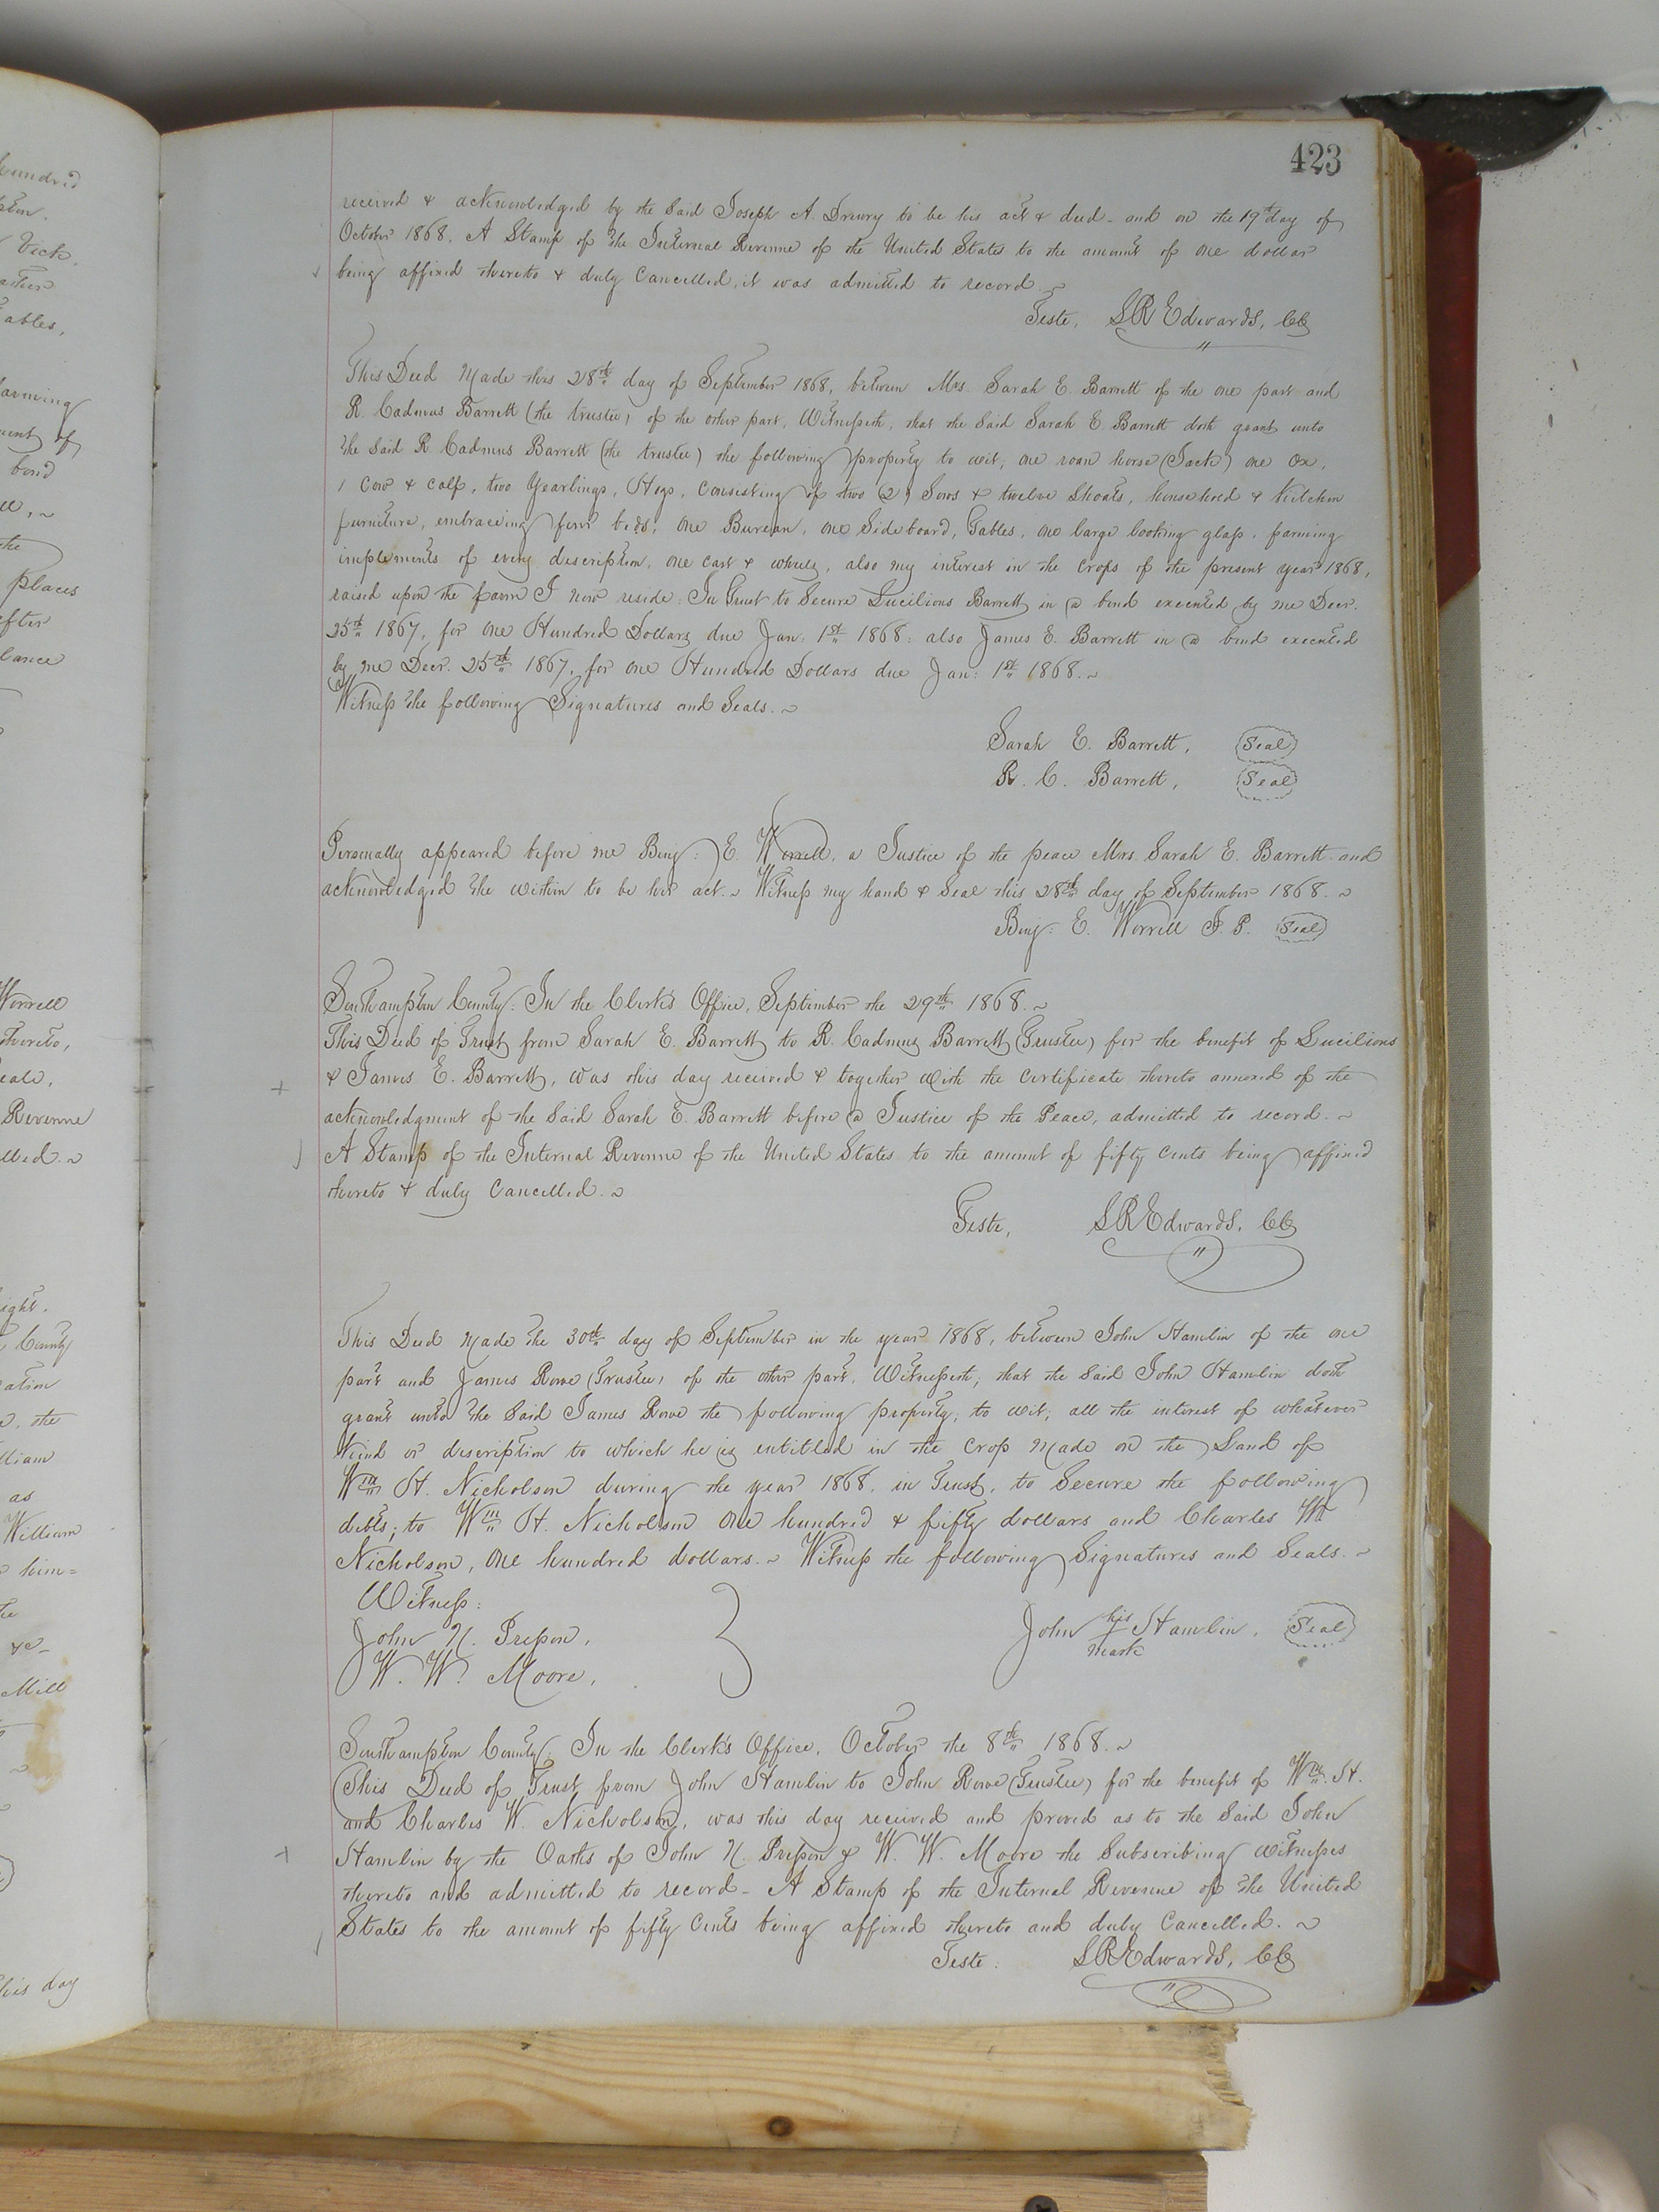 423
received & acknowledged by the Said Joseph A. Drewry to be his act & deed - and on the 19th day of
October 1868. A Stamp of the Internal Revenue of the United States to the amount of one dollar
being affixed thereto & duly Cancelled, it was admitted to record ~
Teste, LREdwards, CC
This Deed Made this 28th day of September 1868, between Mrs. Sarah E. Barrett of the one part and
R. Cadmus Barrett (the trustee) of the other part, Witnesseth, that the Said Sarah E Barrett doth grant unto
the Said R Cadmus Barrett (the trustee) the following property to wit, one roan horse (Jack) one Ox,
1 Cow & calf, two Yearlings, Hogs, Consisting of two (2) Sows & twelve Shoats, household & Kitchen
furniture, embracing four beds, one Bureau, one Sideboard, Tables, one large looking glass, farming
implements of every description, one cart & wheels, also my interest in the crops of the present year 1868,
raised upon the farm I now reside. In Trust to Secure Lucilious Barrett in a bond executed by me Decr.
25th 1867, for one Hundred Dollars due Jan: 1st 1868: also James E. Barrett in a bond executed
by me Decr. 25th 1867, for one Hundred Dollars due Jan: 1st 1868. ~
Witness the following Signatures and Seals. ~
Sarah E. Barrett, Seal
R. C. Barrett, Seal
Personally appeared before me Benj: E. Worrell, a Justice of the peace Mrs. Sarah E. Barrett and
acknowledged the within to be her act. ~ Witness my hand & Seal this 28th day of September 1868. ~
Benj: E. Worrell J. P. Seal
Southampton County: In the Clerk's Office, September the 29th 1868. ~
This Deed of Trust from Sarah E. Barrett to R. Cadmus Barrett (Trustee) for the benefit of Lucilious
& James E. Barrett, was this day received & together with the certificate thereto annexed of the
acknowledgment of the Said Sarah E. Barrett before a Justice of the Peace, admitted to record. ~
A Stamp of the Internal Revenue of the United States to the amount of fifty cents being affixed
thereto & duly Cancelled. ~
Teste, LREdwards, CC
This Deed Made the 30th day of September in the year 1868, between John Hamlin of the one
part and James Rowe (Trustee) of the other part, Witnesseth, that the Said John Hamlin doth
grant unto the Said James Rowe the following property, to wit; all the interest of whatever
Kind or description to which he is entitled in the Crop Made on the Land of
Wm H. Nicholson during the year 1868, in Trust, to Secure the following
debts; to Wm H. Nicholson One hundred & fifty dollars and Charles W
Nicholson, One hundred dollars. ~ Witness the following Signatures and Seals. ~
Witness:
John N. Presson,
W. W. Moore,
John his Hamlin, Seal
mark
Southampton County: In the Clerk's Office, October the 8th 1868. ~
This Deed of Trust from John Hamlin to John Rowe (Trustee) for the benefit of Wm. H.
and Charles W. Nicholson, was this day received and proved as to the Said John
Hamlin by the Oaths of John N. Presson & W. W. Moore the Subscribing witnesses
thereto and admitted to record - A Stamp of the Internal Revenue of the United
States to the amount of fifty Cents being affixed thereto and duly Cancelled. ~
Teste: LREdwards, CC